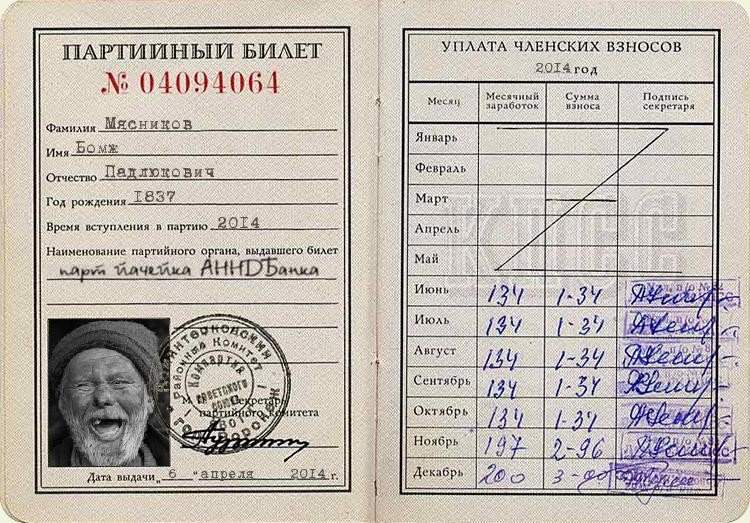 ПАРТИЙНЫЙ БИЛЕТ
№ 04094064
Фамилия Мясников
Имя Бомж
Отчество Падлюкович
Год рождения 1837
Время вступления в партию 2014
Наименование партийного органа, выдавшего билет
парт ячейка АННДБанка
М. П. Секретарь
партийного комитета
Районный Комитет
Компартия
Советского
Союза
Дата выдачи „ 6 " апреля 2014 г.
УПЛАТА ЧЛЕНСКИХ ВЗНОСОВ
2014 год
Месяц Месячный заработок Сумма взноса Подпись секретаря
Январь
Февраль
Март
Апрель
Май
КПСС
Июнь 134 1-34
Июль 134 1-34
Август 134 1-34
Сентябрь 134 1-34
Октябрь 134 1-34
Ноябрь 197 2-96
Декабрь 200